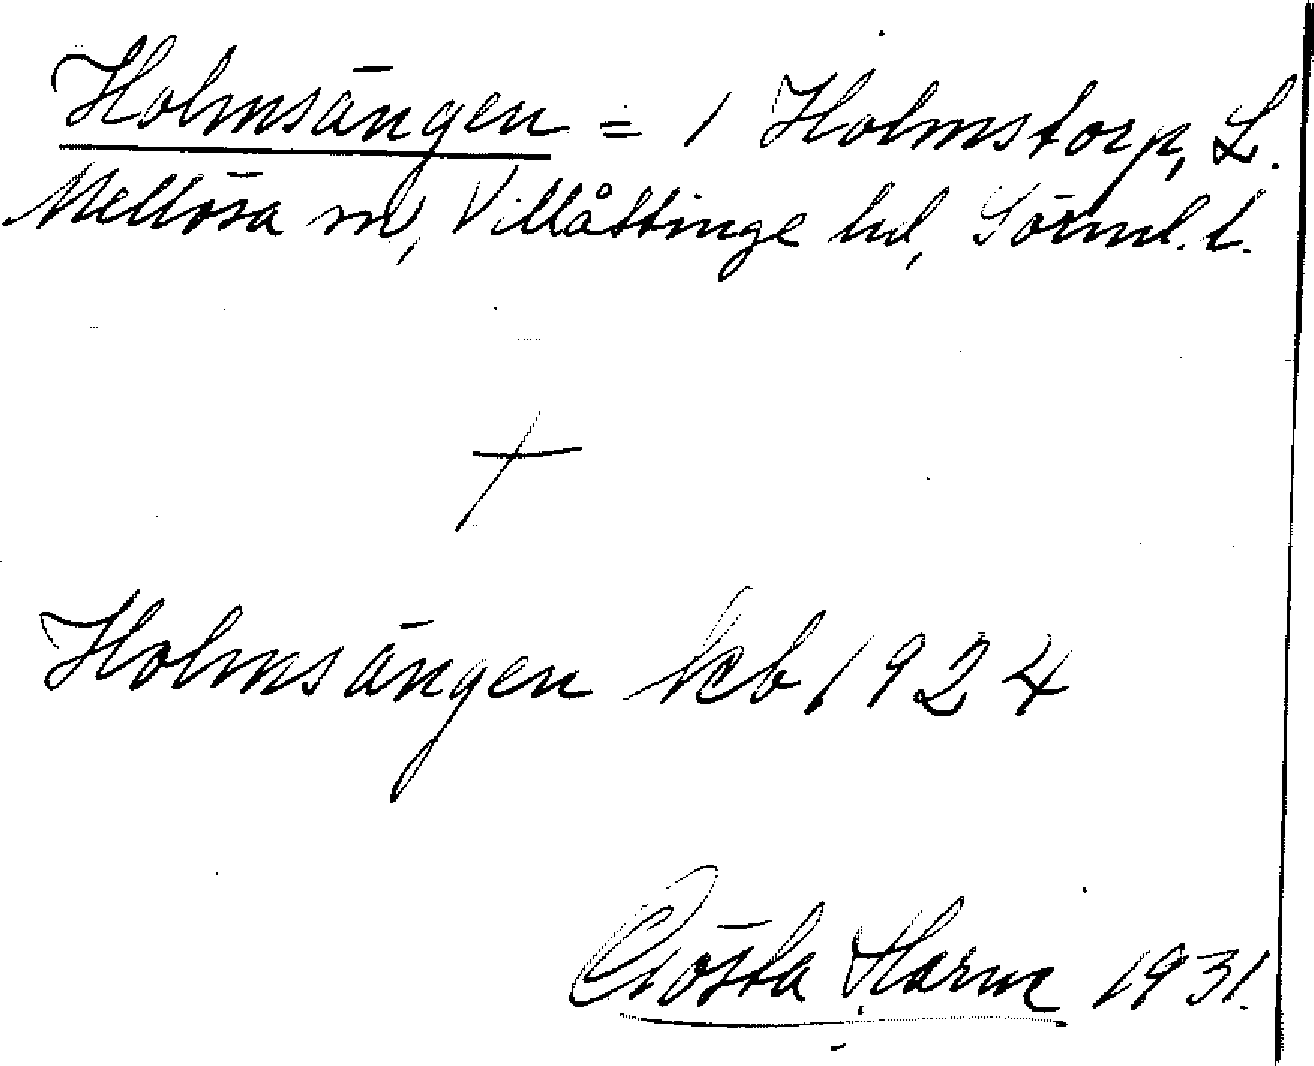 Holmsängen = 1 Holmstorp, L.
Mellösa sn, Villåttinge hd, Sörml. l.
+
Holmsängen kb 1924
Gösta Harm 1931.